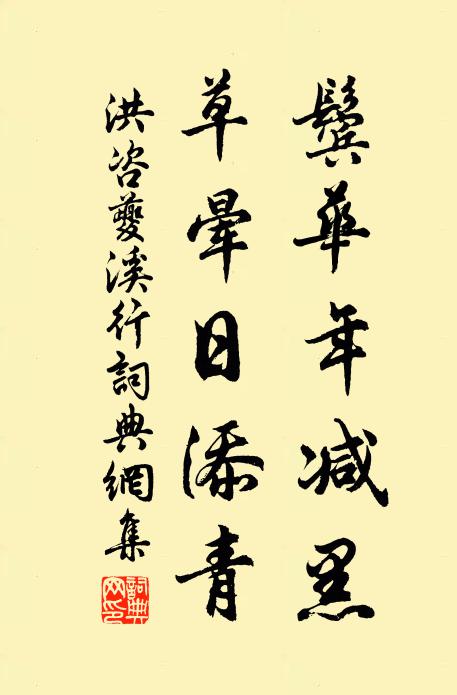 鬓華年减黑
草暈日添青
洪咨夔溪行詞典網集
詞典網印